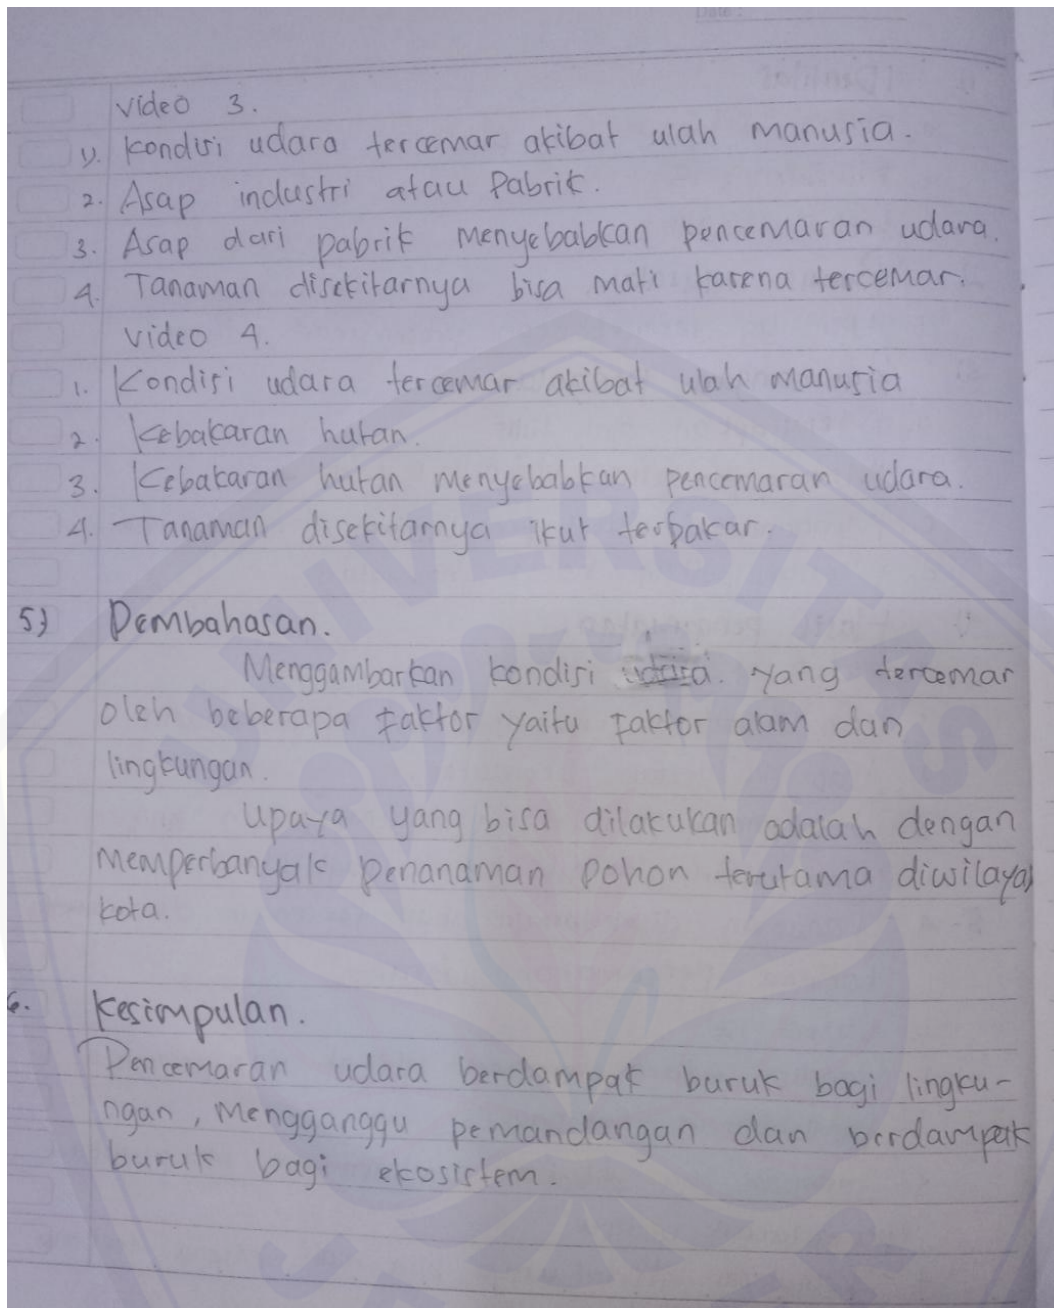 Date :
video 3.
1). Kondisi udara tercemar akibat ulah manusia.
2. Asap industri atau Pabrik.
3. Asap dari pabrik menyebabkan pencemaran udara.
4. Tanaman disekitarnya bisa mati karena tercemar.
video 4.
1. Kondisi udara tercemar akibat ulah manusia
2. Kebakaran hutan.
3. Kebakaran hutan menyebabkan pencemaran udara.
4. Tanaman disekitarnya ikut terbakar.
5) Pembahasan.
Menggambarkan kondisi udara. yang tercemar
oleh beberapa faktor yaitu faktor alam dan
lingkungan.
Upaya yang bisa dilakukan adalah dengan
memperbanyak penanaman pohon terutama diwilayah
kota.
6. Kesimpulan.
Pencemaran udara berdampak buruk bagi lingku-
ngan, mengganggu pemandangan dan berdampak
buruk bagi ekosistem.
UNIVERSITAS